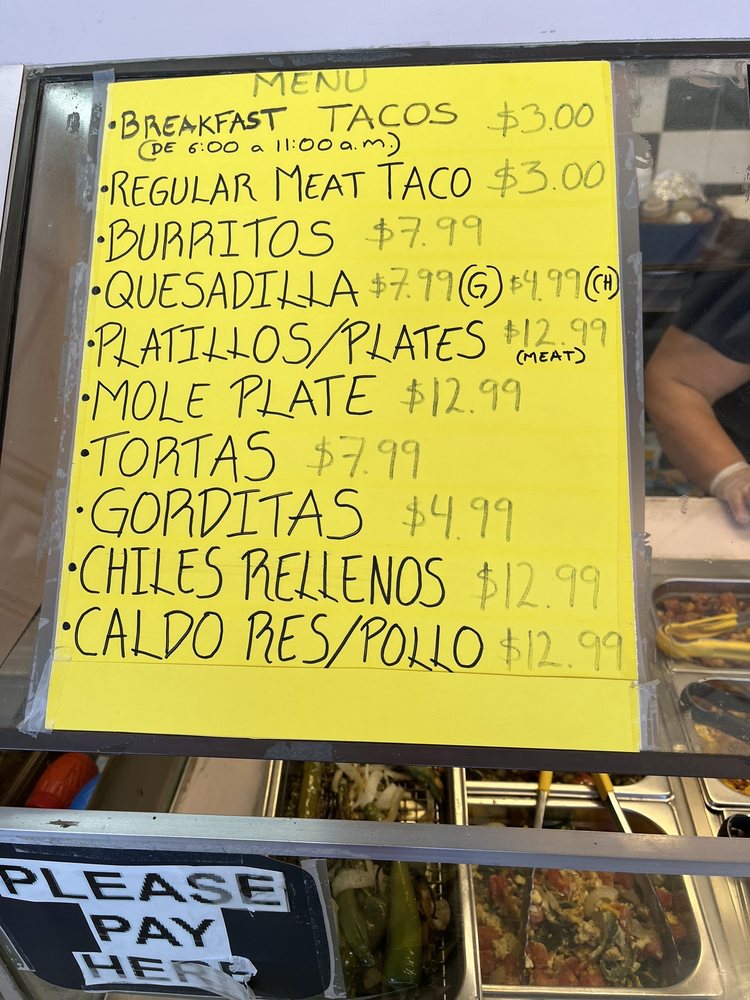 MENU
•BREAKFAST TACOS $3.00
(DE 6:00 a 11:00 a.m.)
•REGULAR MEAT TACO $3.00
•BURRITOS $7.99
•QUESADILLA $7.99(G) $4.99(CH)
•PLATILLOS/PLATES $12.99
(MEAT)
•MOLE PLATE $12.99
•TORTAS $7.99
•GORDITAS $4.99
•CHILES RELLENOS $12.99
•CALDO RES/POLLO $12.99
PLEASE
PAY
HERE